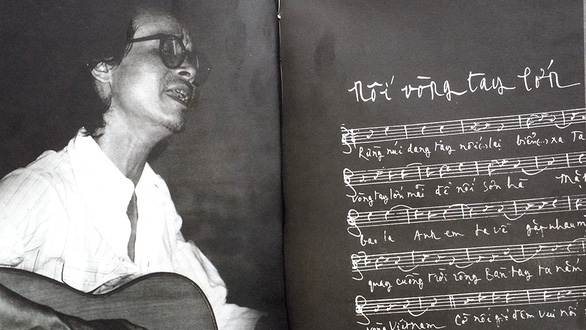 nối vòng tay lớn
Rừng núi dang tay nối lại biển xa Ta
vòng tay lớn mãi để nối sơn hà Mặt
bao la Anh em ta về gặp nhau m
quay cuồng trời rộng Bàn tay ta nắm
vòng Việt Nam Cờ nối gió đêm vui nối